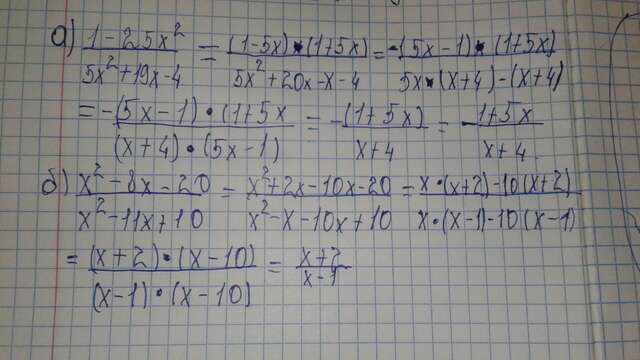 а) (1-25x²)/(5x²+19x-4) = ((1-5x)•(1+5x))/(5x²+20x-x-4) = (-(5x-1)•(1+5x))/(5x•(x+4)-(x+4))
= (-(5x-1)•(1+5x)/((x+4)•(5x-1)) = (-(1+5x))/(x+4) = -(1+5x)/(x+4)
б) (x²-8x-20)/(x²-11x+10) = (x²+2x-10x-20)/(x²-x-10x+10) = (x•(x+2)-10(x+2))/(x•(x-1)-10(x-1))
= ((x+2)•(x-10))/((x-1)•(x-10)) = (x+2)/(x-1)